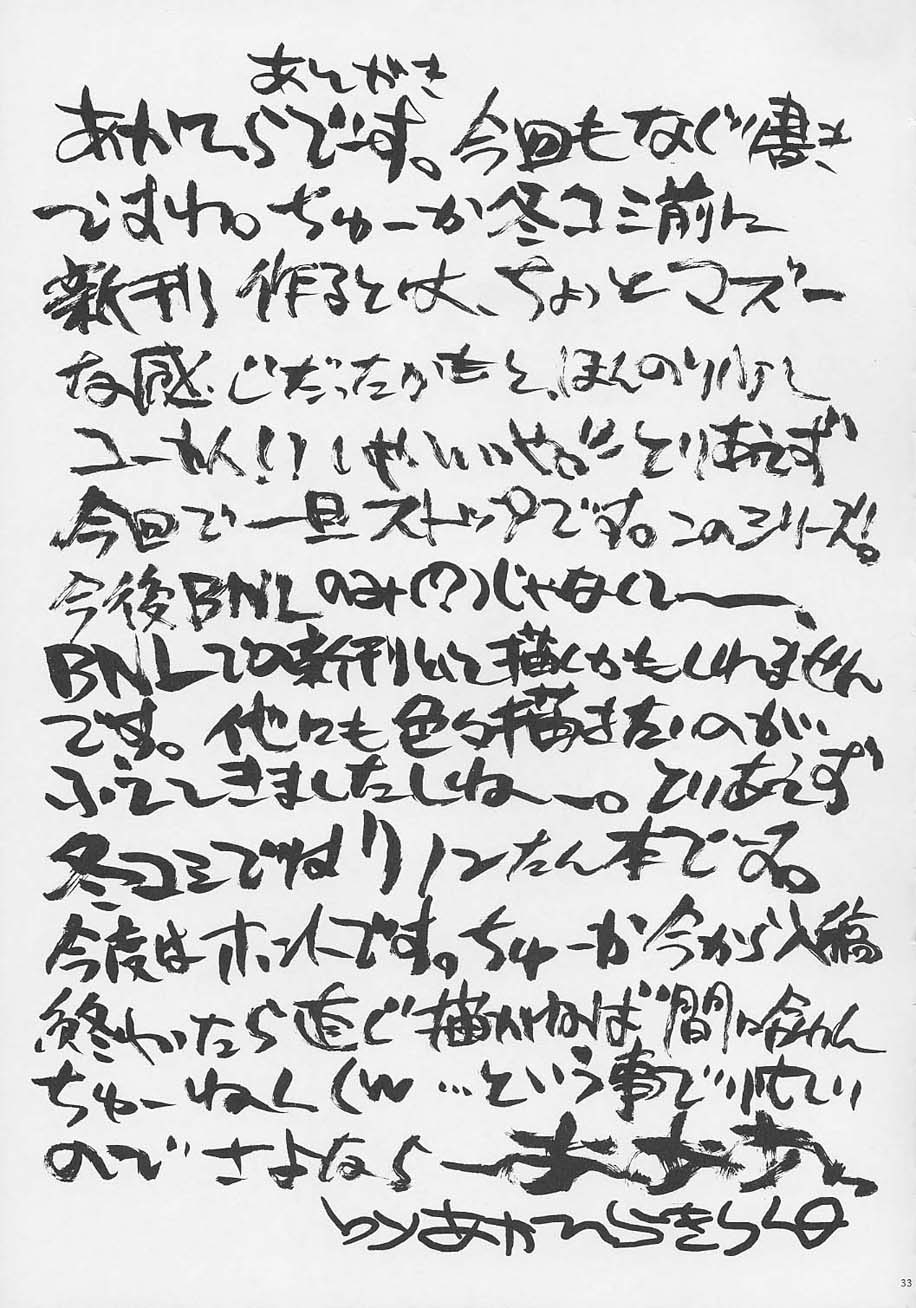 あとがき
あかてらでーす。今回もなぐり書き
ですね。ちゅーか冬コミ前に
新刊 作るとは、ちょっとマズー
な感じだったりもと、ほんのり
とりあえず
今回で一旦ストップです。このシリーズ!。
今後BNLのみ(?)じゃなくてー、
BNLでの新刊として描くかもしれません
です。他にも色々描きたいのが
ふえてきましたしねー。とりあえず
冬コミではリノンたん本でーす。
今度はホントです。ちゅーか今から入稿
終わったら直ぐ描かねば間に合わん
ちゅーねん(w …という事で忙しい
のでさよならー
33